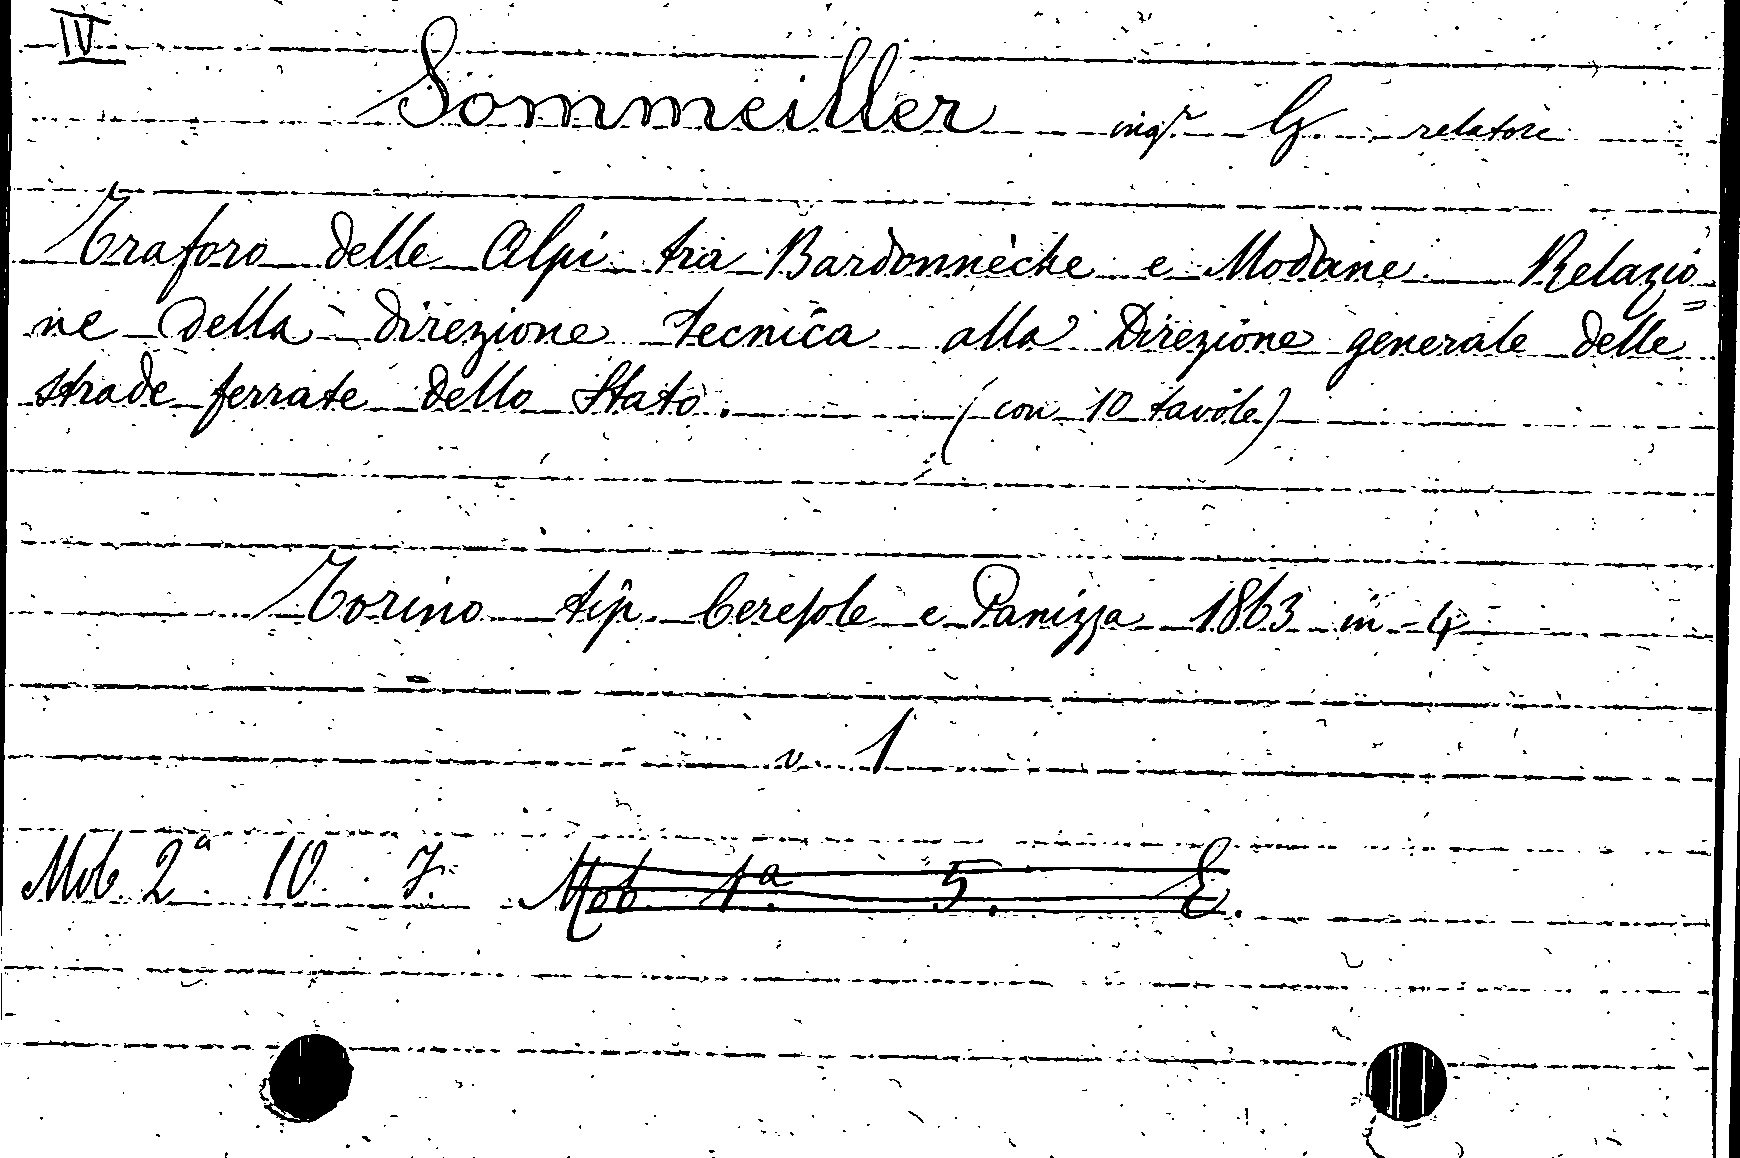 IV
Sommeiller ingr. G. relatore
Traforo delle Alpi tra Bardonnèche e Modane. Relazio=
ne della direzione tecnica alla Direzione generale delle
strade ferrate dello Stato. (con 10 tavole)
Torino tip. Ceresole e Panizza 1863 in 4
v. 1
Mob. 2a. 10. F. Mob. 1a. 5. E.